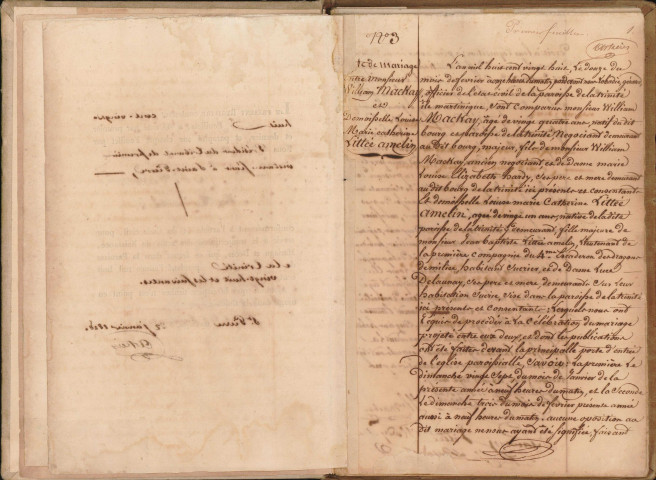 huit cent vingt
à la trinité
vingt-huit et les suivantes.
St Pierre
janvier 1828.
Premier feuillet.
1
N° 3
te de mariage
entre monsieur
William Mackay
et
Demoiselle Louise
Marie catherine
Littée amelin
L'an mil huit cent vingt huit, Le douze du
mois de fevrier à sept heures du matin, pardevant nous
officier de l'etat civil de la paroisse de la trinité
île martinique, sont comparus monsieur William
Mackay, âgé de vingt quatre ans, natif du dit
bourg et paroisse de la trinité Negociant demeurant
au dit bourg, majeur, fils de monsieur William
Mackay, ancien negociant et de dame marie
Louise Elizabeth Hardy, ses pere et mere demeurant
au dit bourg de la trinité ici présents et consentants
Et demoiselle Louise marie Catherine Littée
amelin, agée de vingt un ans, native de la dite
paroisse de la trinité y demeurant, fille majeure de
monsieur Jean baptiste Littée amelin, Lieutenant de
la première compagnie du 4me Escadron des Dragons
de milice, habitant Sucrier, et de Dame Luce
Delaunay, ses pere et mere demeurants sur leur
habitation Sucrerie, sise dans la paroisse de la trinité
ici présents et consentants. Lesquels nous ont
requis de procéder à la Célébration du mariage
projeté entre eux deux, et dont les publications
ont été faites devant la principalle porte d'entrée
de l'église paroissialle, Savoir: la premiere Le
dimanche vingt Sept du mois de Janvier de la
présente année à neuf heures du matin, et la seconde
Le dimanche trois du mois de fevrier presente année
aussi à neuf heures du matin, aucune opposition au
dit mariage ne nous ayant été signifiée, faisant